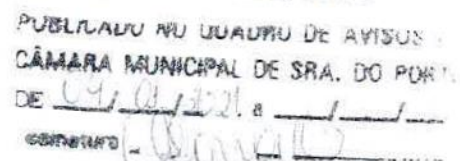 PUBLICADO NO QUADRO DE AVISOS
CÂMARA MUNICIPAL DE SRA. DO POR
DE 04/01/2021. a ___/___/___